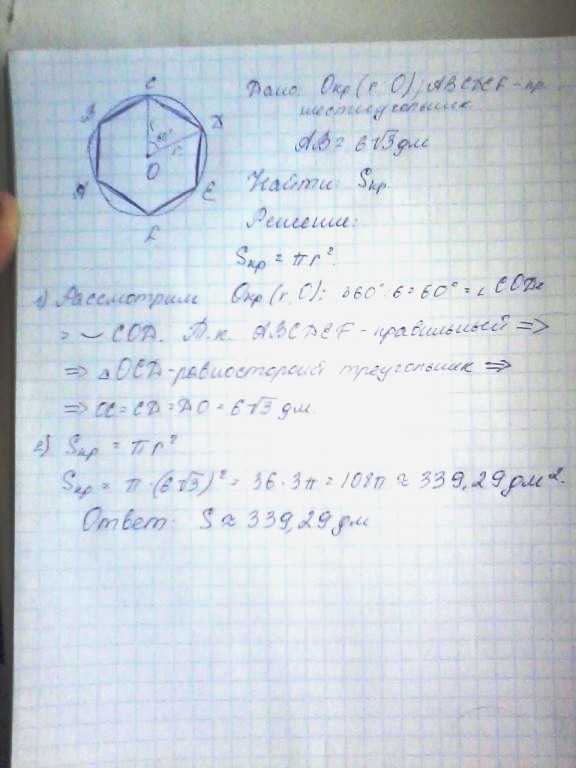 C
B
D
r
60°
r
O
A
E
F
Дано: Окр (r; O); ABCDEF - пр.
шестиугольник
AB = 6√3 дм
Найти: Sкр
Решение:
Sкр = πr².
1) Рассмотрим Окр (r; O): 360° : 6 = 60° = ∠ COD =
= ◡ COD. Т.к. ABCDEF - правильный =>
=> △ OCD - равносторонний треугольник =>
=> OC = CD = DO = 6√3 дм.
2) Sкр = πr²
Sкр = π · (6√3)² = 36 · 3π = 108π ≈ 339,29 дм².
Ответ: S ≈ 339,29 дм